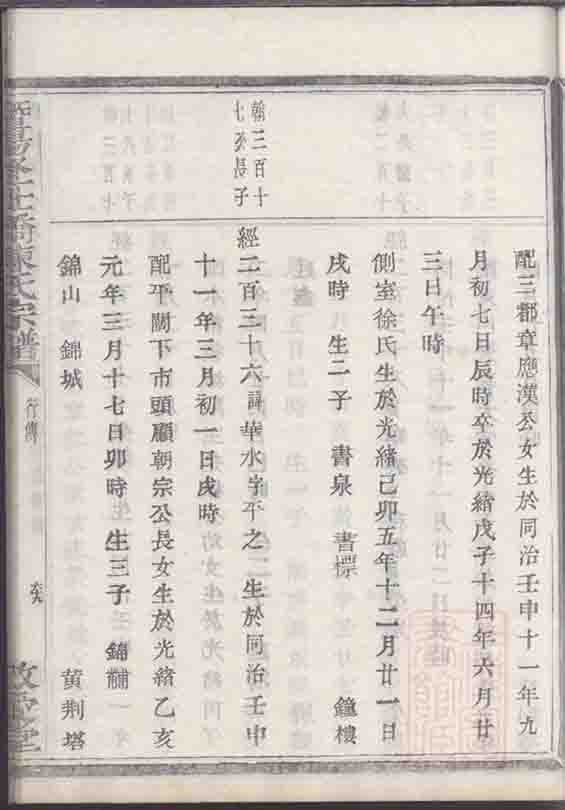 配三都章應漢公女生於同治壬申十一年九
月初七日辰時卒於光緒戊子十四年六月廿
三日午時
側室徐氏生於光緒己卯五年十二月廿一日
戌時 生二子 書泉 書標 鐘樓
翰三百十
七公長子
經二百三十六諱華水字平之 生於同治壬申
十一年三月初一日戌時
配平關下市頭顧朝宗公長女生於光緒乙亥
元年三月十七日卯時 生三子 錦黼
錦山 錦城 黄荆塔
氏宗譜
行傳
六九